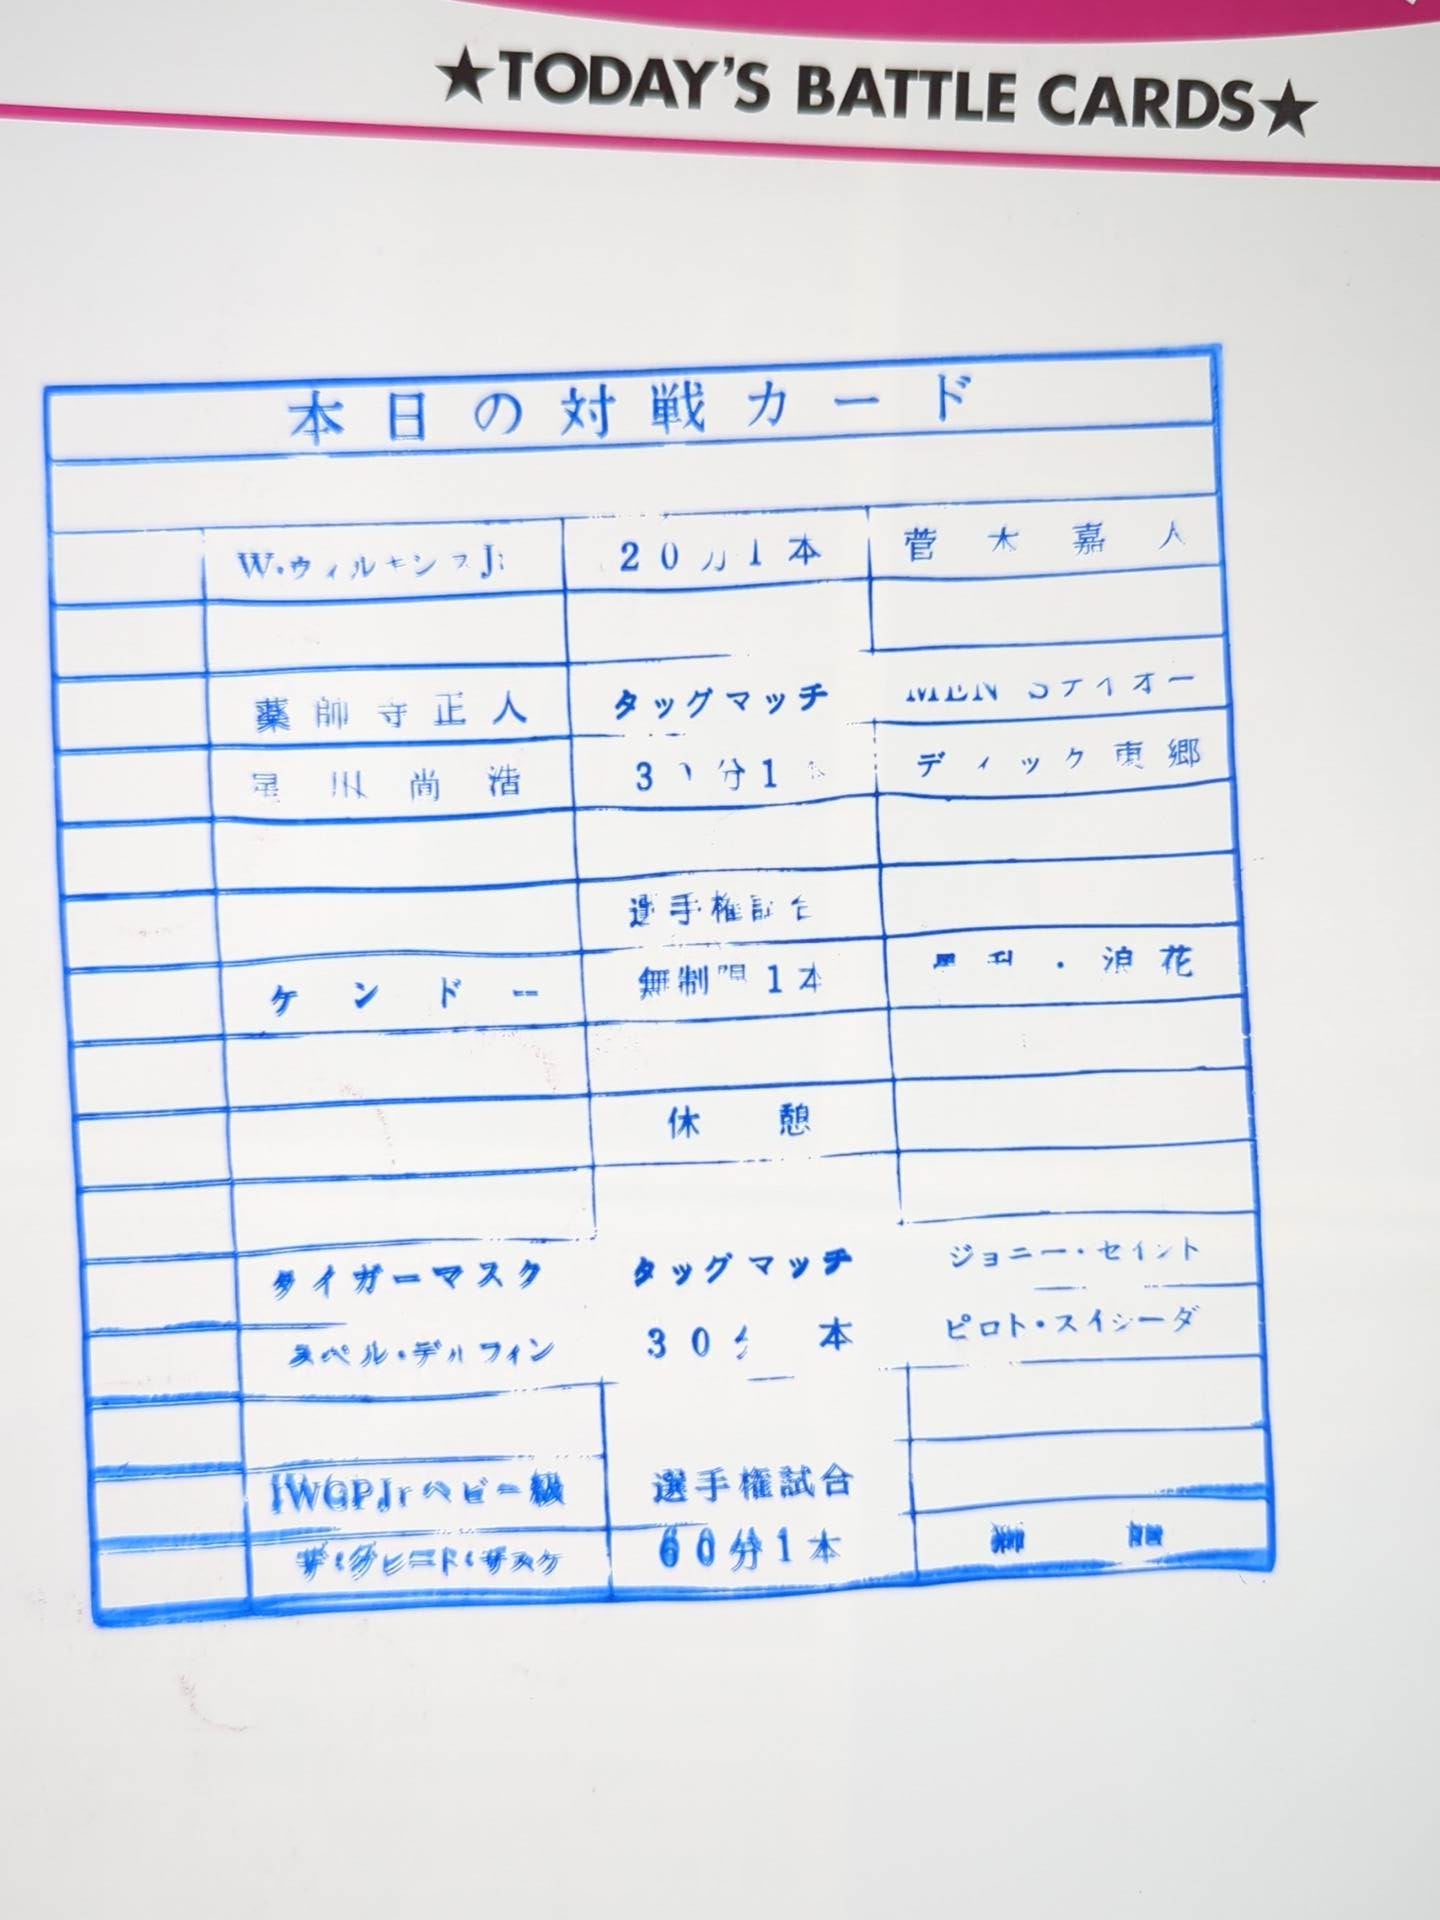 ★TODAY'S BATTLE CARDS★
本日の対戦カード
W・ウィルキンスJr 20分1本 菅本嘉人
薬師寺正人 タッグマッチ MEN'Sテイオー
星川尚浩 30分1本 ディック東郷
選手権試合
ケンドー 無制限1本 ・浪花
休憩
タイガーマスク タッグマッチ ジョニー・セイント
スペル・デルフィン 30分 本 ピロト・スイシーダ
IWGPJrヘビー級 選手権試合
ザ・グレート・サスケ 60分1本